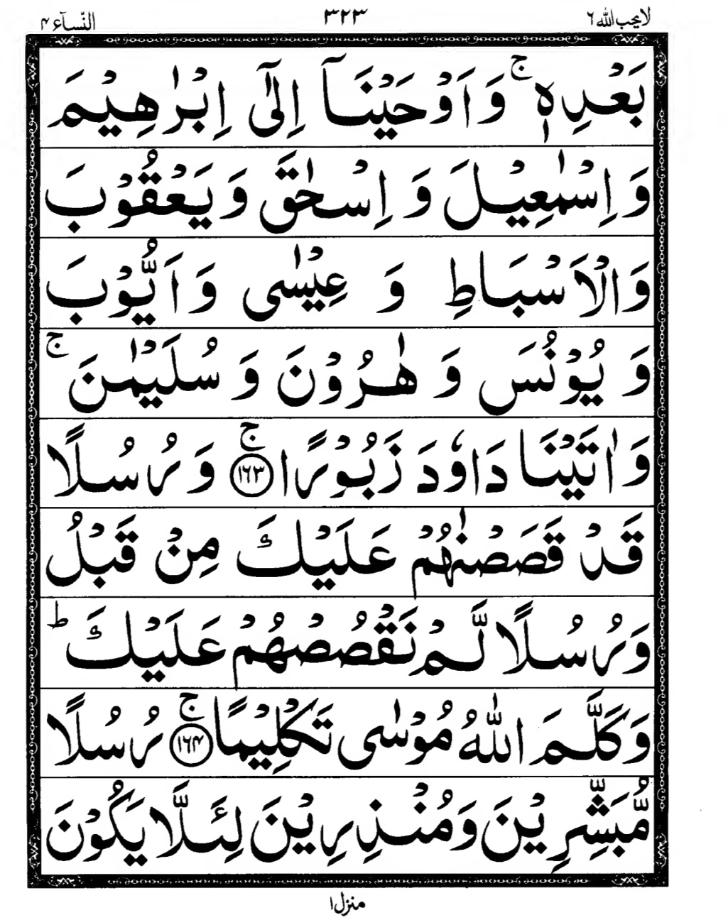 لایحب الله ۶ ۳۲۳ النّسآء ۴
بَعْدِهٖ ۚ وَ اَوْحَیْنَاۤ اِلٰۤی اِبْرٰهِیْمَ
وَ اِسْمٰعِیْلَ وَ اِسْحٰقَ وَ یَعْقُوْبَ
وَ الْاَسْبَاطِ وَ عِیْسٰی وَ اَیُّوْبَ
وَ یُوْنُسَ وَ هٰرُوْنَ وَ سُلَیْمٰنَ ۚ
وَ اٰتَیْنَا دَاوٗدَ زَبُوْرًا ۚ ﴿۱۶۳﴾ وَ رُسُلًا
قَدْ قَصَصْنٰهُمْ عَلَیْكَ مِنْ قَبْلُ
وَ رُسُلًا لَّمْ نَقْصُصْهُمْ عَلَیْكَ ؕ
وَ كَلَّمَ اللّٰهُ مُوْسٰی تَكْلِیْمًا ۚ ﴿۱۶۴﴾ رُسُلًا
مُّبَشِّرِیْنَ وَ مُنْذِرِیْنَ لِئَلَّا یَكُوْنَ
منزل ۱